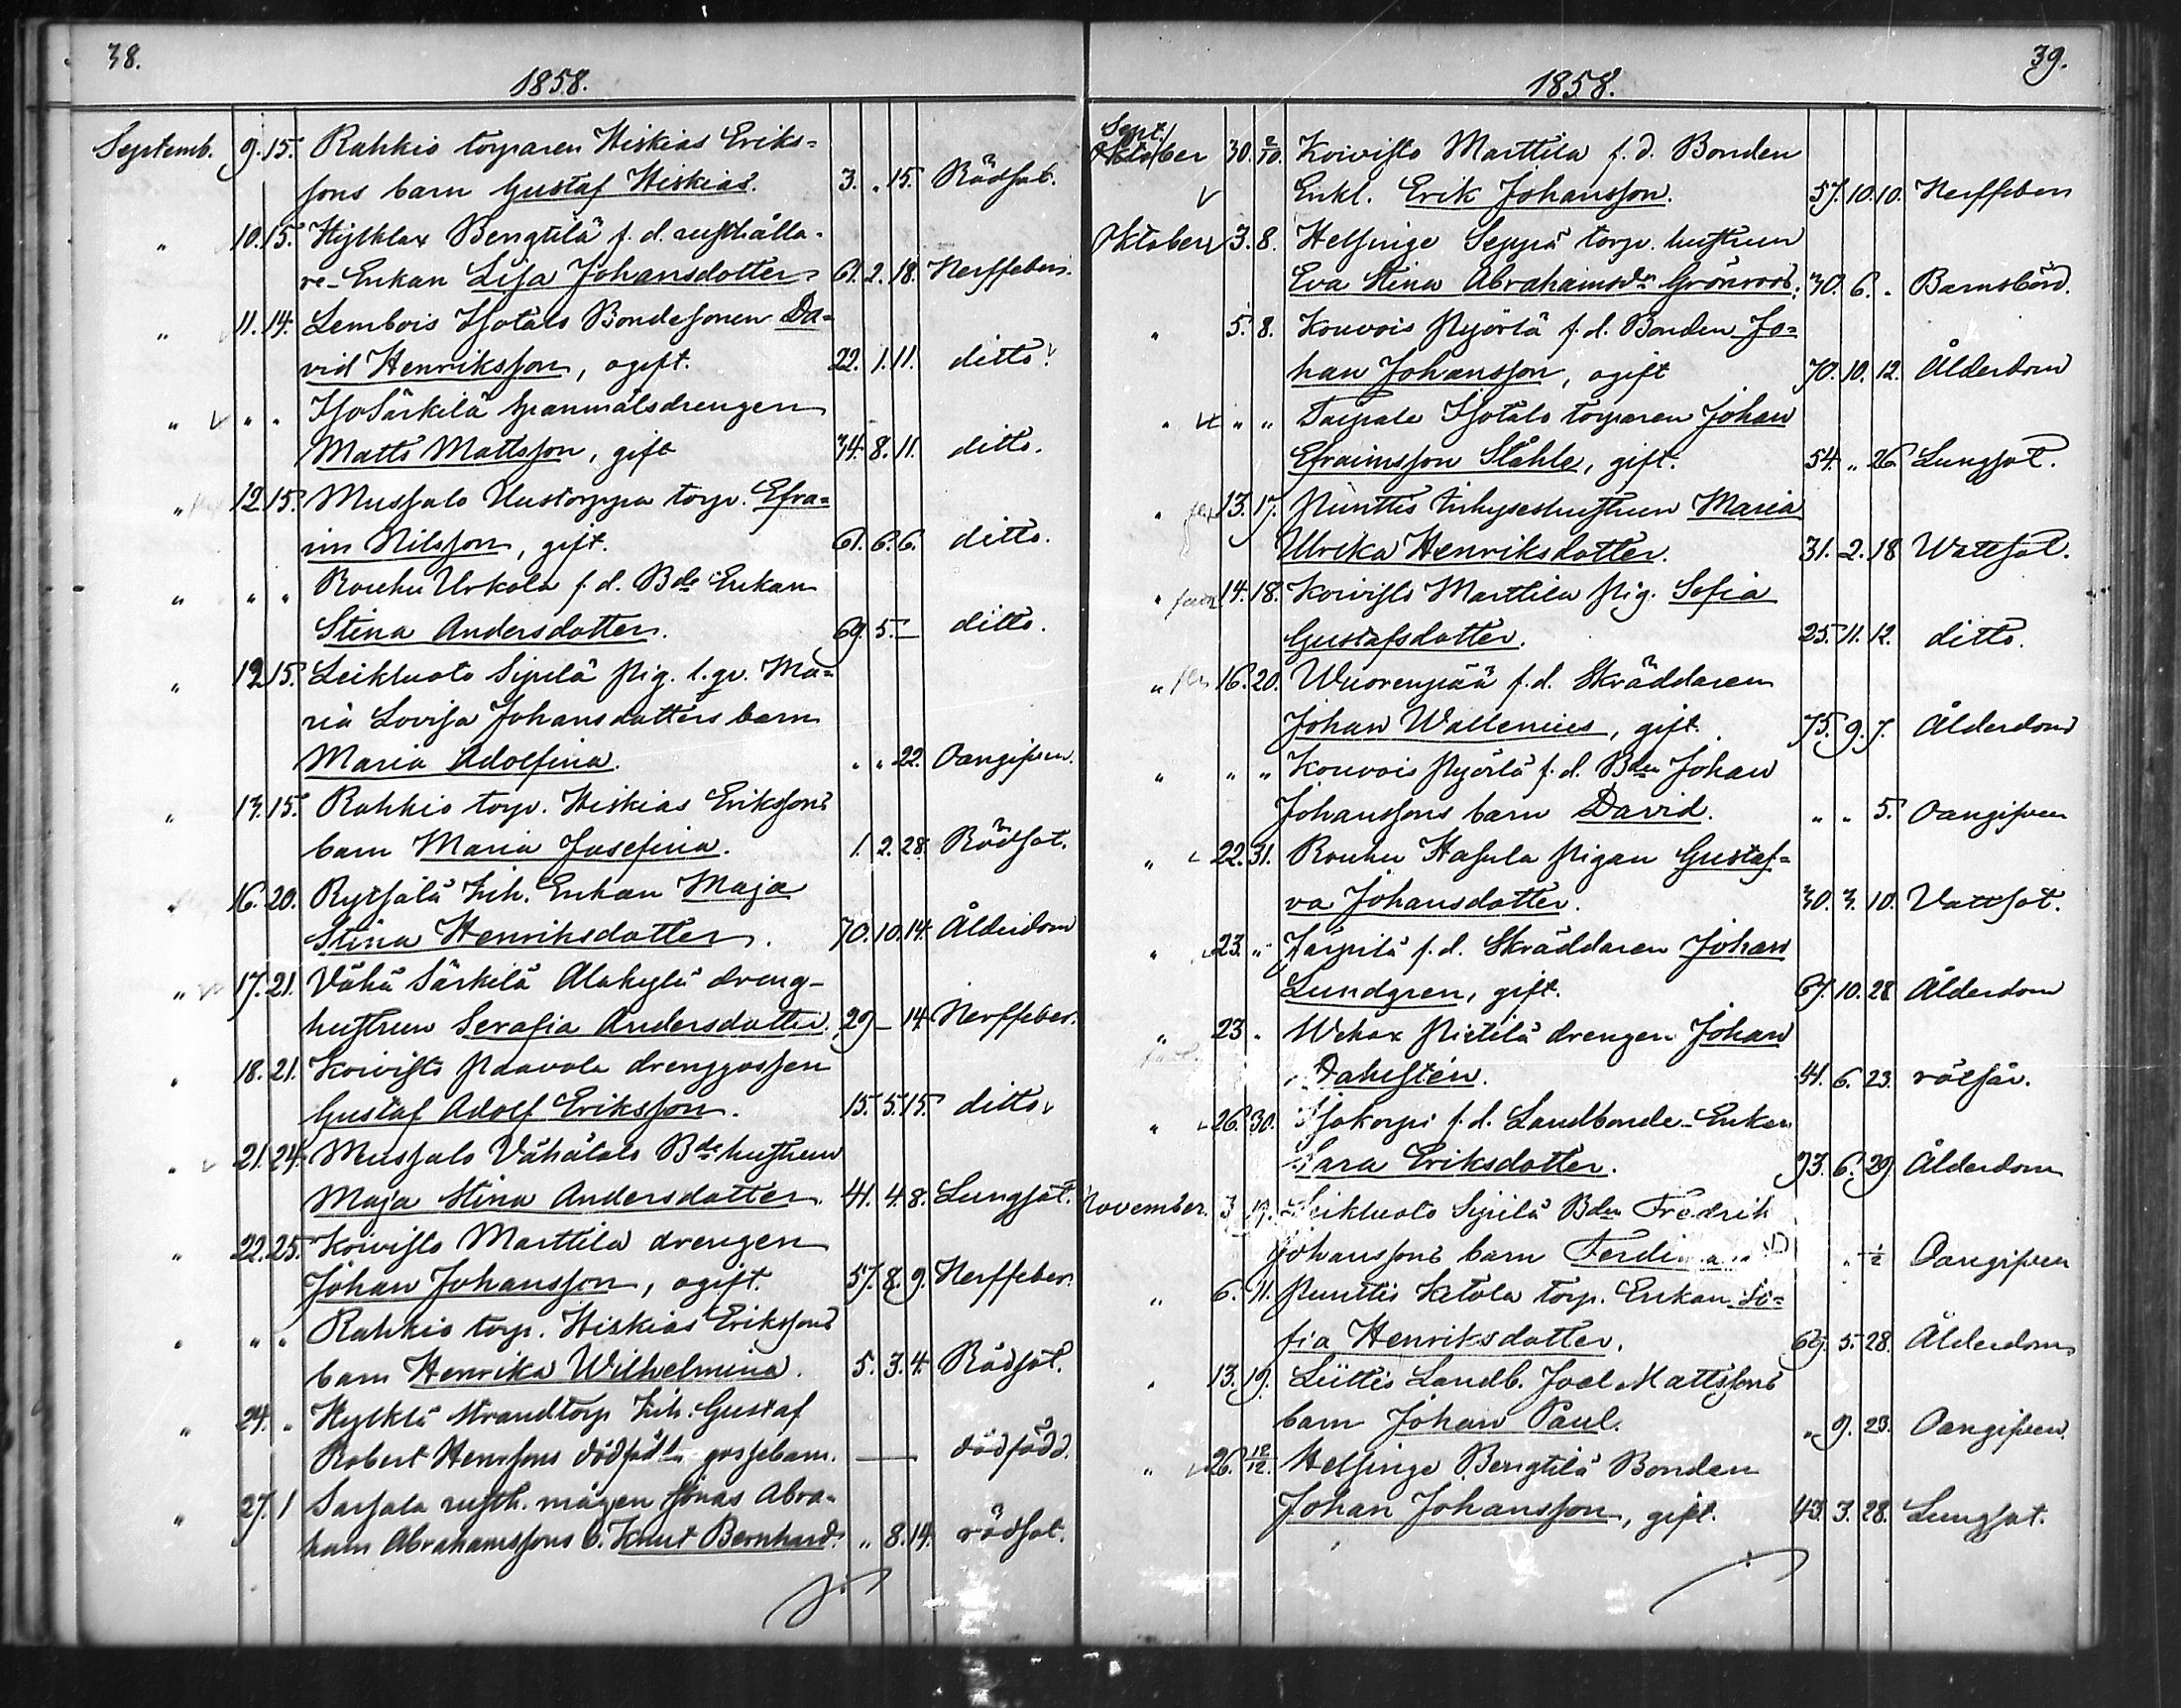 38.
1858.
Septemb. 9. 15. Rahkio torparen Hiskias Eriks-
sons barn Gustaf Hiskias. 3. " 15. Rödsot.
" 10. 15. Hylklax Bengtilä f. d. rusthålla-
re-Enkan Lisa Johansdotter 61. 2. 18. Nerffeber.
" 11. 14. Lembois Isotalo Bondesonen Da-
vid Henriksson, ogift. 22. 1. 11. ditto
" " " Iso Särkilä spanmålsdrengen
Matts Mattsson, gift 34. 8. 11. ditto.
" 12. 15. Mussalo Uustorppa torp. Efra-
im Nilsson, gift. 61. 6. 6. ditto.
" " " Rouhu Urkola f. d. Bde Enkan
Stina Andersdotter. 69. 5. — ditto.
" 12. 15. Leikluoto Sipilä pig. l. qv. Ma-
ria Lovisa Johansdotters barn
Maria Adolfina. " " 22. Oangifven.
" 13. 15. Rahkio torp. Hiskias Erikssons
barn Maria Josefina. 1. 2. 28. Rödsot.
" 16. 20. Rytsälä Inh. Enkan Maja
Stina Henriksdotter. 70. 10. 14. Ålderdom
" 17. 21. Vähä Särkilä Alakylä dreng-
hustrun Serafia Andersdotter. 29 — 14. Nerffeber.
" 18. 21. Koivisto Paavola drenggossen
Gustaf Adolf Eriksson. 15. 5. 15. ditto
" 21. 24. Mussalo Vähätalo Bde hustrun
Maja Stina Andersdotter 41. 4. 8. Lungsot.
" 22. 25. Koivisto Marttila drengen
Johan Johansson, ogift. 57. 8. 9. Nerffeber.
" " " Rahkio torp. Hiskias Erikssons
barn Henrika Wilhelmina. 5. 3. 4. Rödsot.
" 24. " Hylklä strandtorp Inh. Gustaf
Robert Henrssons dödfödt gossebarn. — dödfödd.
" 27. 1 Sarsala rusth. mågen Jonas Abra-
ham Abrahamssons b. Knut Bernhard. " 8. 14. rödsot.
39.
1858.
Sept.
Oktober 30. 2/10. Koivisto Marttila f. d. Bonden
Enkl. Erik Johansson. 57. 10. 10. Nerffeber
Oktober 3. 8. Helsinge Seppä torp. hustrun
Eva Stina Abrahamsdr Grönroos. 30. 6. " Barnsbörd.
" 5. 8. Kouvois Pyörlä f. d. Bonden Jo-
han Johansson, ogift 70. 10. 12. Ålderdom
" " " Taipale Isotalo torparen Johan
Efraimsson Ståhle, gift. 54. " 26. Lungsot.
" 13. 17. Punttis Inhyseshustrun Maria
Ulrika Henriksdotter. 31. 2. 18 Wattsot.
" 14. 18. Koivisto Marttila pig. Sofia
Gustafsdotter. 25. 11. 12. ditto.
" 16. 20. Wuorenpää f. d. Skräddaren
Johan Wallenius, gift. 75. 9. 7. Ålderdom
" " " Kouvois Pyörlä f. d. Bden Johan
Johanssons barn David. " " 5. Oangifven
" 22. 31. Rouhu Hasula Pigan Gustaf-
va Johansdotter. 30. 3. 10. Vattsot.
" 23. " Järpilä f. d. Skräddaren Johan
Lundgren, gift. 67. 10. 28 Ålderdom
" 23 " Wehax Pietilä drengen Johan
Dahlstén. 41. 6. 23. rötsår.
" 26. 30. Isokorpi f. d. Landbonde-Enkan
Sara Eriksdotter. 73. 6. 29 Ålderdom
November. 3 19. Leikluoto Sipilä Bden Fredrik
Johanssons barn Ferdinand " " ½ Oangifven
" 6. 11. Punttis Ketola torp. Enkan So-
fia Henriksdotter. 69. 5. 28. Ålderdom
" 13. 19. Liittis Landb. Joel Mattssons
barn Johan Paul. " 9. 23. Oangifven.
" 26. 12/12. Helsinge Bengtilä Bonden
Johan Johansson, gift. 43. 3. 28. Lungsot.